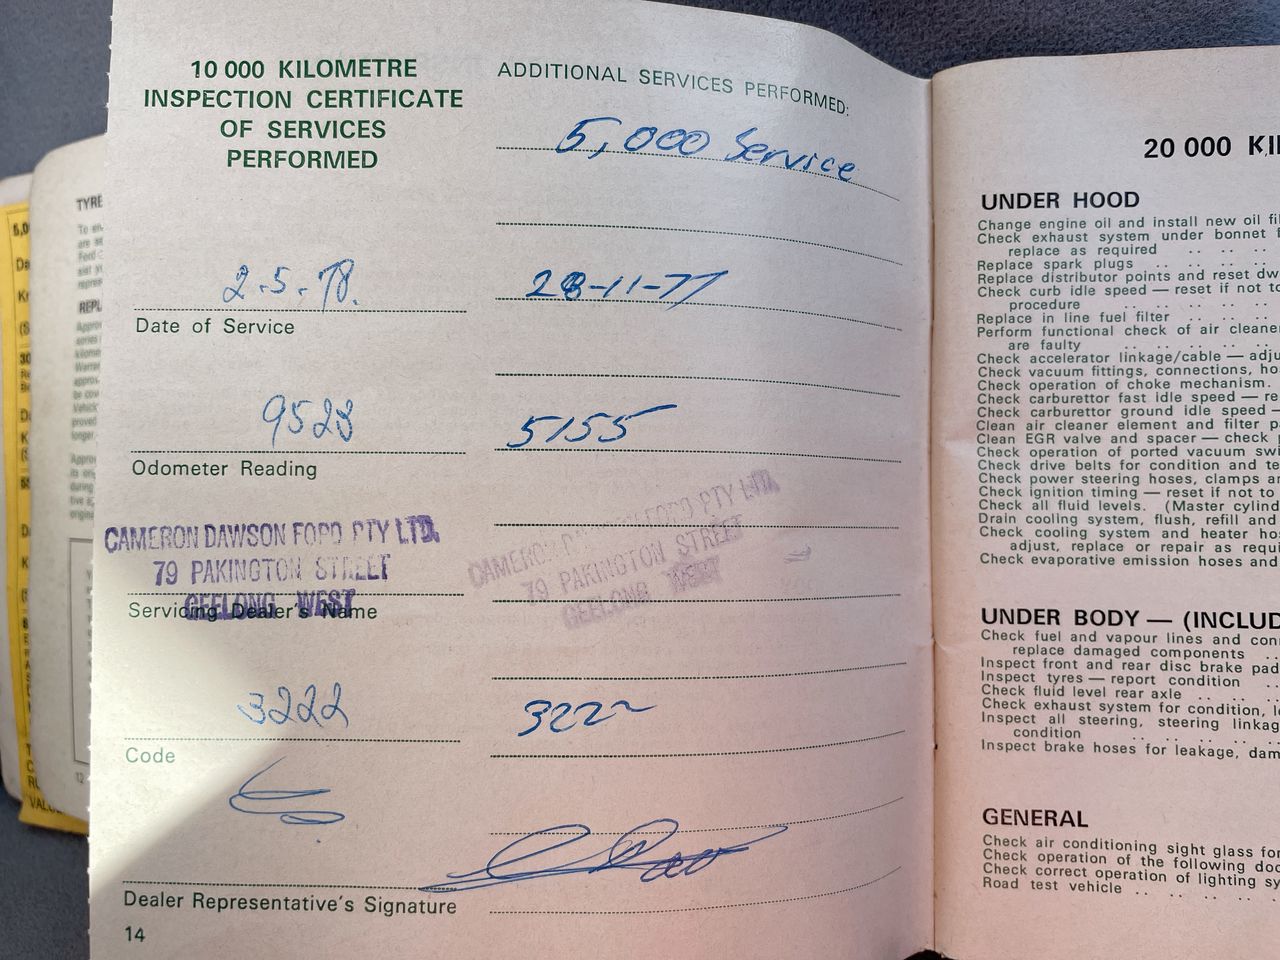 TYRE
REPL
10 000 KILOMETRE
INSPECTION CERTIFICATE
OF SERVICES
PERFORMED
2.5.78.
Date of Service
9523
Odometer Reading
CAMERON DAWSON FORD PTY LTD.
79 PAKINGTON STREET
GEELONG WEST
Servicing Dealer's Name
3222
Code
Dealer Representative's Signature
14
ADDITIONAL SERVICES PERFORMED:
5,000 Service
28-11-77
5155
FORD PTY LTD.
79 PAKINGTON STREET
GEELONG WEST
3222
20 000 KI
UNDER HOOD
Change engine oil and install new oil fil
Check exhaust system under bonnet f
replace as required .. .. .. ..
Replace spark plugs .. .. .. ..
Replace distributor points and reset dw
Check curb idle speed — reset if not to
procedure .. .. .. ..
Replace in line fuel filter .. .. ..
Perform functional check of air cleaner
are faulty .. .. .. .. ..
Check accelerator linkage/cable — adju
Check vacuum fittings, connections, ho
Check operation of choke mechanism.
Check carburettor fast idle speed — re
Check carburettor ground idle speed —
Clean air cleaner element and filter p
Clean EGR valve and spacer — check
Check operation of ported vacuum swi
Check drive belts for condition and te
Check power steering hoses, clamps a
Check ignition timing — reset if not to
Check all fluid levels. (Master cylind
Drain cooling system, flush, refill and
Check cooling system and heater ho
adjust, replace or repair as requi
Check evaporative emission hoses and
UNDER BODY — (INCLUD
Check fuel and vapour lines and con
replace damaged components ..
Inspect front and rear disc brake pad
Inspect tyres — report condition ..
Check fluid level rear axle .. .. ..
Check exhaust system for condition, l
Inspect all steering, steering linkag
condition .. .. .. ..
Inspect brake hoses for leakage, dam
GENERAL
Check air conditioning sight glass for
Check operation of the following doo
Check correct operation of lighting sy
Road test vehicle .. .. .. ..